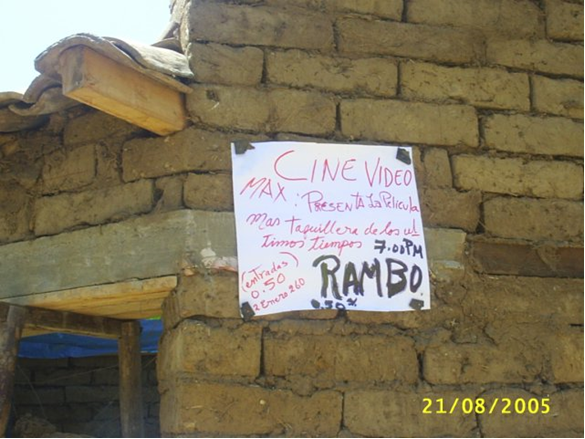 CINE VIDEO
MAX: PRESENTA La Película
mas taquillera de los ul
timos tiempos 7.00 PM
(entradas)
0.50
RAMBO
21/08/2005